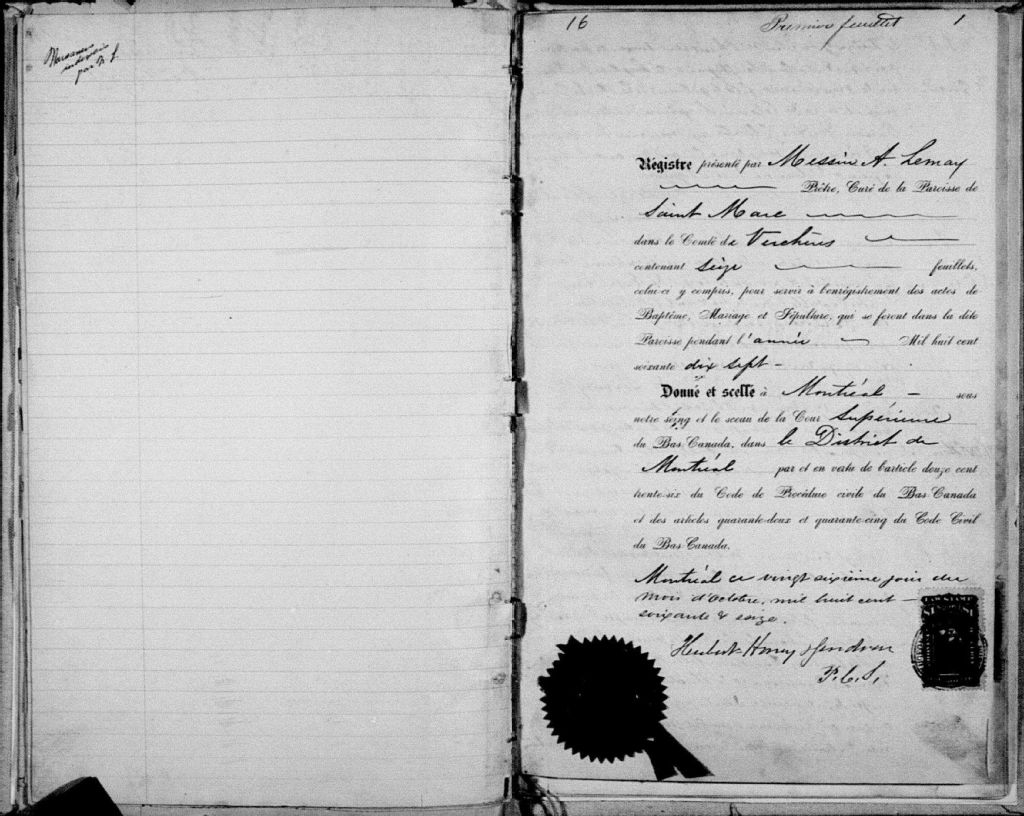 par
16
Premier feuillet
1
Régistre présenté par Messire A. Lemay
Prêtre, Curé de la Paroisse de
Saint Marc
dans le Comté de Verchères
contenant seize feuillets,
celui-ci y compris, pour servir à l'enrégistrement des actes de
Baptême, Mariage et Sépulture, qui se feront dans la dite
Paroisse pendant l'année Mil huit cent
soixante dix sept -
Donné et scellé à Montréal - sous
notre seing et le sceau de la Cour Supérieure
du Bas-Canada, dans le District de
Montréal par et en vertu de l'article douze cent
trente-six du Code de Procédure civile du Bas-Canada
et des articles quarante-deux et quarante-cinq du Code Civil
du Bas-Canada.
Montréal ce vingt sixième jour du
mois d'Octobre, mil huit cent
soixante & seize.
Hubert Honey & Gendron
P.C.S.